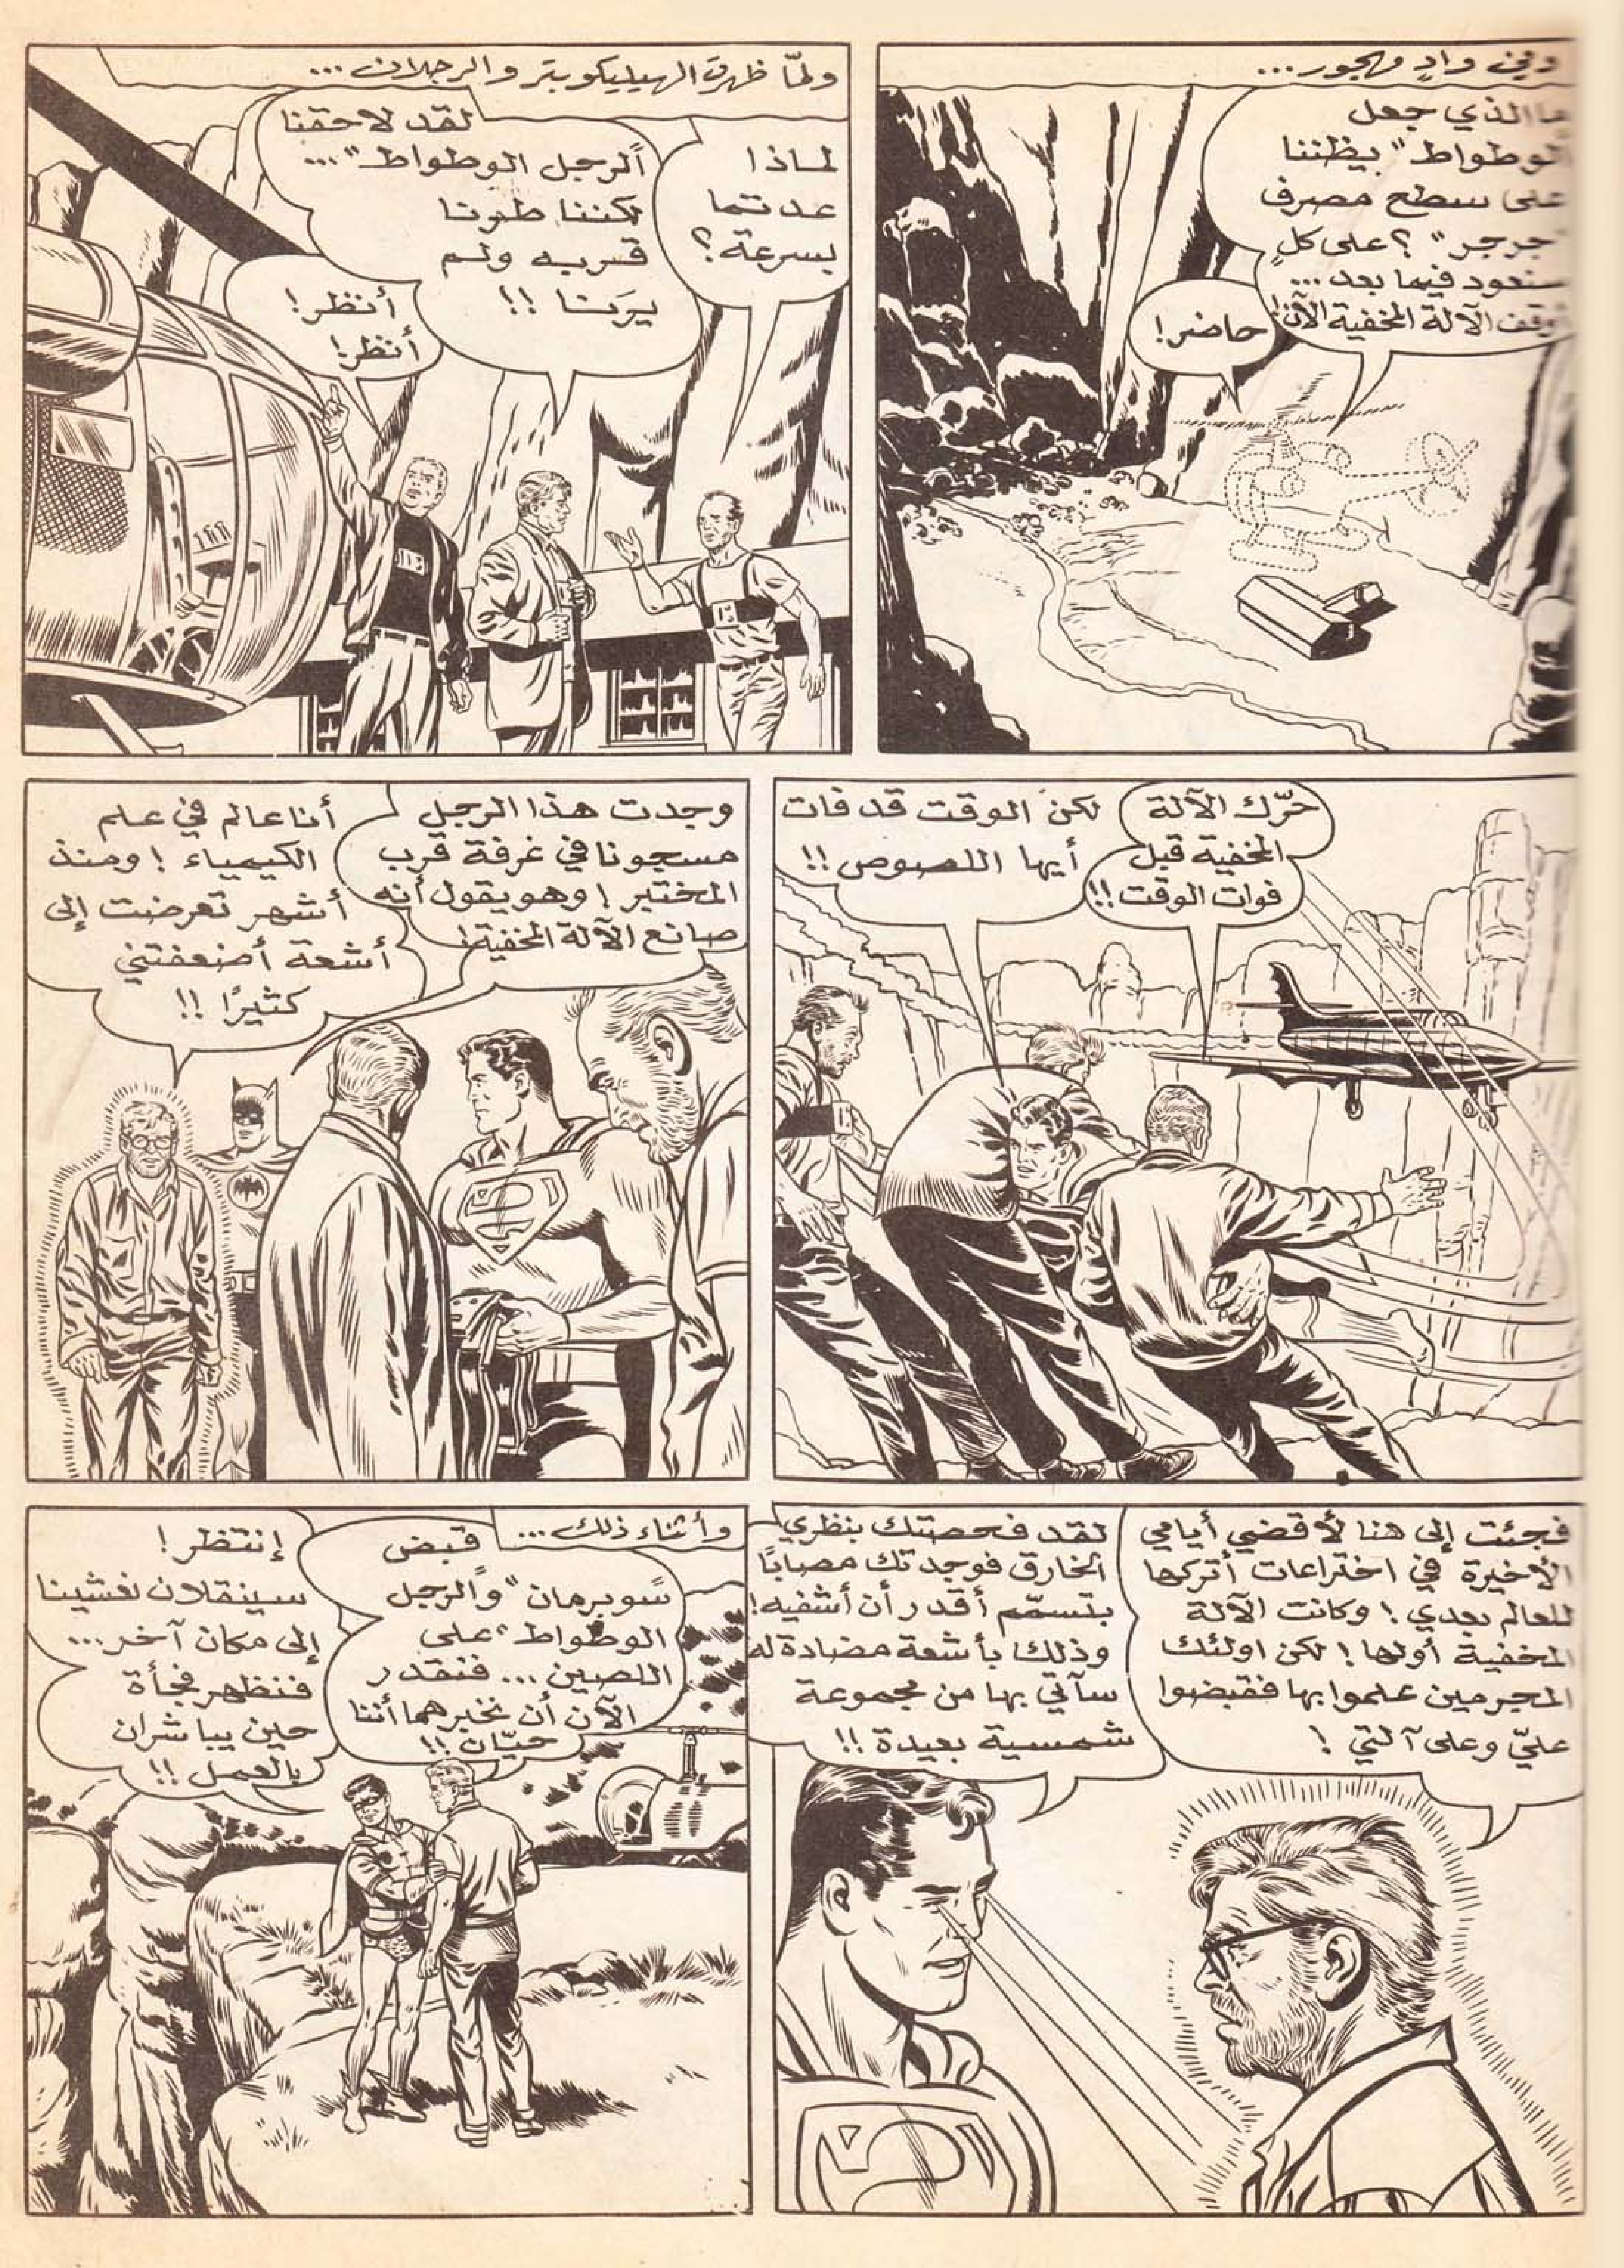 وفي وادٍ مهجور...
ما الذي جعل
الوطواط" يظننا
على سطح مصرف
"جرجر"؟ على كلٍ
سنعود فيما بعد...
أوقف الآلة المخفية الآن!
حاضر!
ولمّا ظهرت الهيليكوبتر والرجلان...
لماذا
عدتما
بسرعة؟
لقد لاحقنا
"الرجل الوطواط"...
لكننا طرنا
قربه ولم
يرَنا!!
أنظر!
أنظر!
حرّك الآلة
المخفية قبل
فوات الوقت!!
لكن الوقت قد فات
أيها اللصوص!!
وجدت هذا الرجل
مسجونا في غرفة قرب
المختبر! وهو يقول أنه
صانع الآلة المخفية!
أنا عالم في علم
الكيمياء! ومنذ
أشهر تعرضت إلى
أشعة أضعفتني
كثيرًا!!
فجئت إلى هنا لأقضي أيامي
الأخيرة في اختراعات أتركها
للعالم بعدي! وكانت الآلة
المخفية أولها! لكن اولئك
المجرمين علموا بها فقبضوا
عليّ وعلى آلتي!
لقد فحصتك بنظري
الخارق فوجدتك مصابًا
بتسمّم أقدر أن أشفيه!
وذلك بأشعة مضادة له
سآتي بها من مجموعة
شمسية بعيدة!!
وأثناء ذلك...
قبض
"سوبرمان" و"الرجل
الوطواط" على
اللصين... فنقدر
الآن أن نخبرهما أننا
حيّان!!
إنتظر!
سينقلان نفسينا
إلى مكان آخر...
فنظهر فجأة
حين يباشران
بالعمل!!